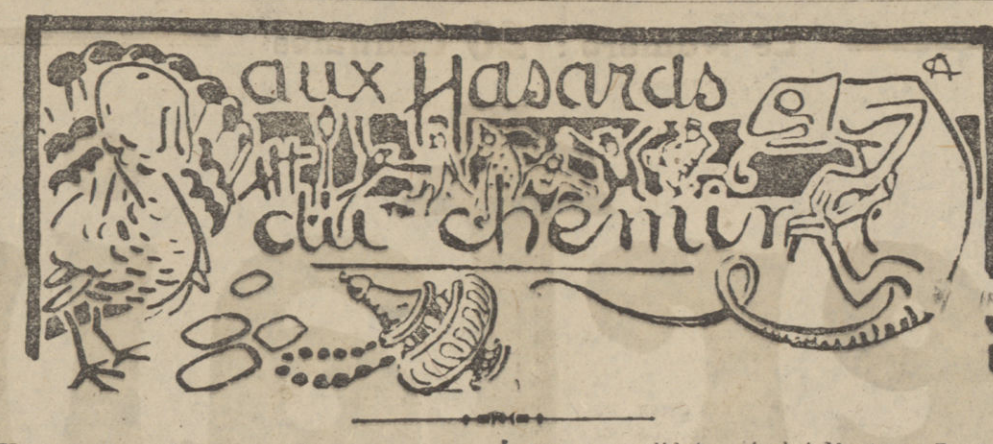 aux Hasards
du chemin